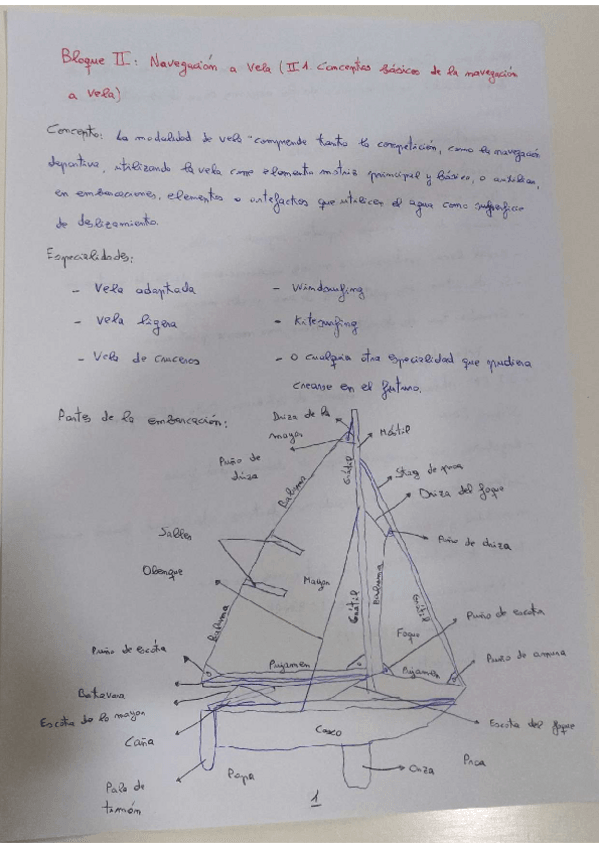 Bloque II: Navegación a vela (II 1. Conceptos básicos de la navegación
a vela)
Concepto: La modalidad de vela "comprende tanto la competición, como la navegación
deportiva, utilizando la vela como elemento motriz principal y básico, o auxiliar,
en embarcaciones, elementos o artefactos que utilicen el agua como superficie
de deslizamiento.
Especialidades:
- Vela adaptada
- Windsurfing
- Vela ligera
- Kitesurfing
- Vela de cruceros
- o cualquier otra especialidad que pudiera
crearse en el futuro.
Partes de la embarcación:
Driza de la
mayor
Mástil
Puño de
driza
Grátil
Stay de proa
Baluma
Driza del foque
Sables
Puño de driza
Obenque
Mayor
Baluma
Grátil
Baluma
Grátil
Puño de escota
Foque
Puño de escota
Pujamen
Pujamen
Puño de amura
Botavara
Escota de la mayor
Escota del foque
Caña
Casco
Proa
Popa
Orza
Pala de
timón
1